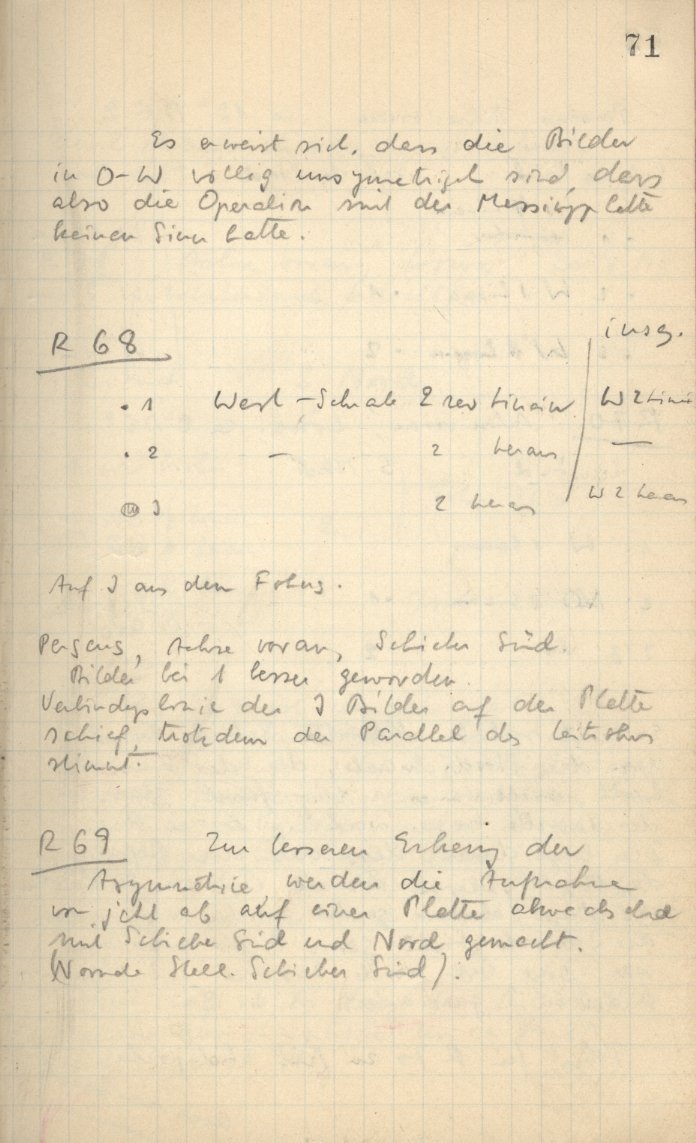 71
Es erweist sich, dass die Bilder
in O-W völlig unsymetrisch sind, dass
also die Operation mit der Messingplatte
keinen Sinn hatte.
insg.
R 68
. 1 West-Schraube 2 rev hinein W 2 hinein
. 2 — 2 heraus —
3 2 heraus W 2 heraus
Auf 3 aus dem Fokus.
Pegasus, Achse voran, Schieber Süd.
Bilder bei 1 besser geworden.
Verbindungslinie der 3 Bilder auf der Platte
schief, trotzdem der Parallel des Leitrohrs
stimmt.
R 69 Zur besseren der
Asymmetrie werden die Aufnahmen
von jetzt ab auf einer Platte abwechselnd
mit Schieber Süd und Nord gemacht.
(Normale Stell. Schieber Süd).